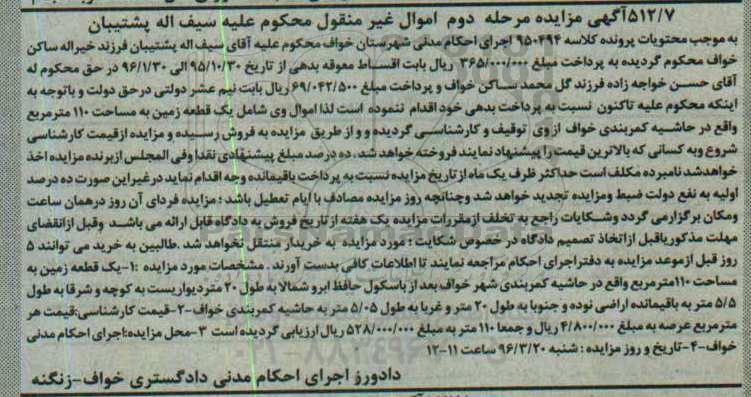 ۵۱۲/۷آگهی مزایده مرحله دوم اموال غیر منقول محکوم علیه سیف اله پشتیبان
به موجب محتویات پرونده کلاسه ۹۵۰۴۹۴ اجرای احکام مدنی شهرستان خواف محکوم علیه آقای سیف اله پشتیبان فرزند خیراله ساکن
خواف محکوم گردیده به پرداخت مبلغ ۳۶۵/۰۰۰/۰۰۰ ریال بابت اقساط معوقه بدهی از تاریخ ۹۵/۱۰/۳۰ الی ۹۶/۱/۳۰ در حق محکوم له
آقای حسن خواجه زاده فرزند گل محمد ساکن خواف و پرداخت مبلغ ۶۹/۰۴۲/۵۰۰ ریال بابت نیم عشر دولتی درحق دولت و باتوجه به
اینکه محکوم علیه تاکنون نسبت به پرداخت بدهی خود اقدام ننموده است لذا اموال وی شامل یک قطعه زمین به مساحت ۱۱۰ مترمربع
واقع در حاشیه کمربندی خواف از وی توقیف و کارشناسی گردیده و و از طریق مزایده به فروش رسیده و مزایده ازقیمت کارشناسی
شروع وبه کسانی که بالاترین قیمت را پیشنهاد نمایند فروخته خواهد شد . ده درصد مبلغ پیشنهادی نقدا وفی المجلس ازبرنده مزایده اخذ
خواهدشد نامبرده مکلف است حداکثر ظرف یک ماه از تاریخ مزایده نسبت به پرداخت باقیمانده وجه اقدام نماید درغیراین صورت ده درصد
اولیه به نفع دولت ضبط ومزایده تجدید خواهد شد وچنانچه روز مزایده مصادف با ایام تعطیل باشد ؛ مزایده فردای آن روز درهمان ساعت
ومکان برگزارمی گردد وشکایات راجع به تخلف ازمقررات مزایده یک هفته از تاریخ فروش به دادگاه قابل ارائه می باشد وقبل ازانقضای
مهلت مذکوریاقبل ازاتخاذ تصمیم دادگاه در خصوص شکایت ؛ مورد مزایده به خریدار منتقل نخواهد شد .طالبین به خرید می توانند ۵
روز قبل ازموعد مزایده به دفتراجرای احکام مراجعه نمایند تا اطلاعات کافی بدست آورند . مشخصات مورد مزایده :۱-یک قطعه زمین به
مساحت ۱۱۰مترمربع واقع در حاشیه کمربندی شهر خواف بعد از باسکول حافظ ابرو شمالا به طول ۲۰ متردیواریست به کوچه و شرقا به طول
۵/۵ متر به باقیمانده اراضی نوده و جنوبا به طول ۲۰ متر و غربا به طول ۵/۰۵ متر به حاشیه کمربندی خواف-۲-قیمت کارشناسی:قیمت هر
مترمربع عرصه به مبلغ ۴/۸۰۰/۰۰۰ ریال و جمعا ۱۱۰ متر به مبلغ ۵۲۸/۰۰۰/۰۰۰ ریال ارزیابی گردیده است ۳-محل مزایده:اجرای احکام مدنی
خواف-۴-تاریخ و روز مزایده : شنبه ۹۶/۳/۲۰ ساعت ۱۱-۱۲
دادورز اجرای احکام مدنی دادگستری خواف-زنگنه